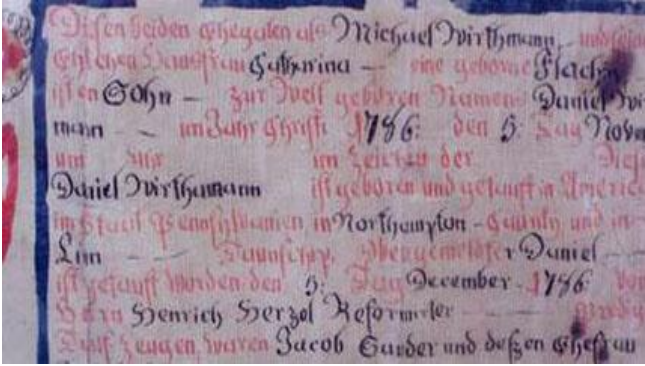 Disen beiden Ehegaten als Michael Wirthmann, und seine
Ehlichen Hausfrau Catharina – eine geborne Flach
ist ein Sohn – zur Welt geboren Namens Daniel Wi
mann – – im Jahr Christi 1786: den 5: Tag Nove
um Uhr im Zeichen der Dieser
Daniel Wirthmann ist geboren und getauft in America
im Staat Pennsylvanien in Northampton – Caunty und in
Linn – – Taunschip, Obengemeldter Daniel – –
ist getauft worden den 5: Tag December – 1786: von
Herrn Henrich Herzol Reformirter
Tauf Zeugen waren Jacob und deßen Ehefrau